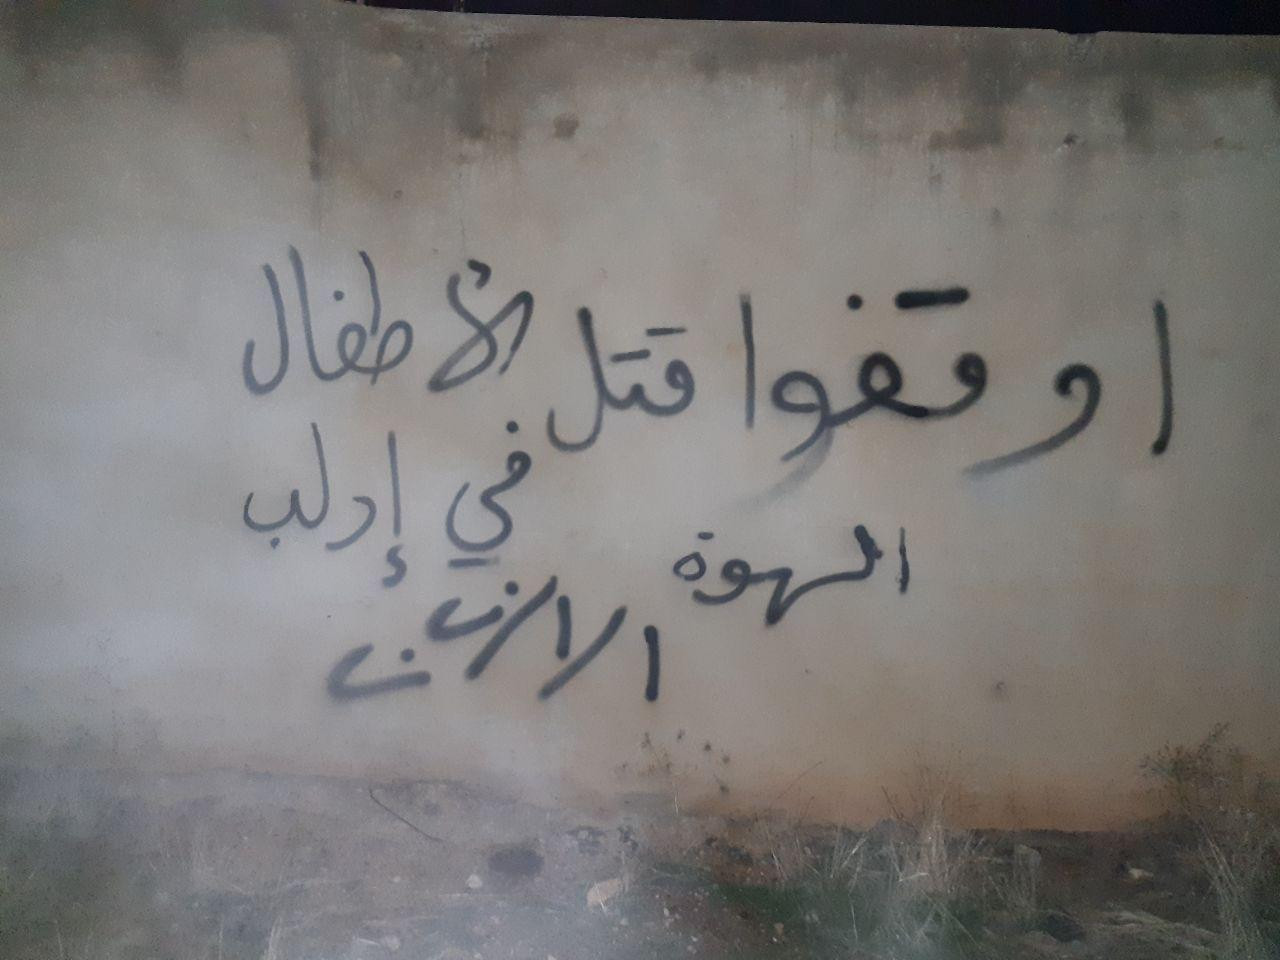 اوقفوا قتل الأطفال
في إدلب
الهوة
الان